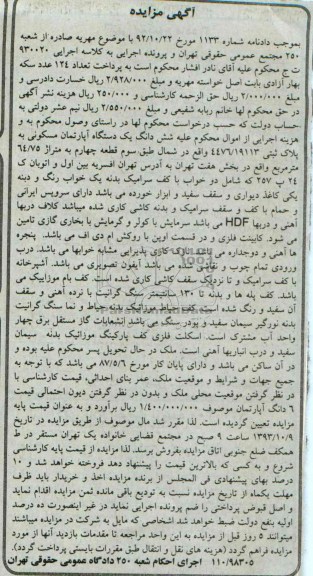 آگهی مزایده
بموجب دادنامه شماره ۱۱۳۳ مورخ ۹۲/۱۰/۲۲ با موضوع مهریه صادره از شعبه
۲۵۰ مجتمع عمومی حقوقی تهران و پرونده اجرایی به کلاسه اجرایی ۹۳۰۰۲۰
ت ج محکوم علیه آقای نادر افشار محکوم است به پرداخت تعداد ۱۲۴ عدد سکه
بهار آزادی بابت اصل خواسته مهریه و مبلغ ۲/۹۲۸/۰۰۰ ریال خسارت دادرسی و
مبلغ ۲/۱۰۰/۰۰۰ ریال حق الزحمه کارشناسی و ۲۵۰/۰۰۰ ریال هزینه نشر آگهی
در حق محکوم لها خانم ربابه شفیعی و مبلغ ۲/۵۵۰/۰۰۰ ریال نیم عشر دولتی به
حساب دولت که حسب درخواست محکوم لها در راستای وصول محکوم به و
هزینه اجرایی از اموال محکوم علیه شش دانگ یک دستگاه آپارتمان مسکونی به
پلاک ثبتی ۴۴۷۶/۱۹۱۱۳ واقع در شمال طبق سوم قطعه چهارم به متراژ ۶۴/۷۵
مترمربع واقع در بخش هفت تهران به آدرس تهران افسریه بین اول و اتوبان ک
۲۴ پ ۲۵۷ که شامل دو خواب با کف سرامیک بدنه یک خواب رنگ و دینه
یکی کاغذ دیواری و سقف سفید و ابزار خورده می باشد دارای سرویس ایرانی
و حمام با کف و سقف سرامیک و بدنه کاشی کاری شده میباشد کلاف دربها
آهنی و دربها HDF می باشد سرمایش با کولر و گرمایش با بخاری گازی تامین
می شود. کابینت فلزی و در قسمت اوپن با روکش ام دی اف می باشد. پنجره
ها آهنی و دوجداره می باشد نازک کاری پذیرایی مشابه خوابها می باشد. درب
ورودی تمام چوب و نقاشی شده می باشد آیفون تصویری می باشد. آشپزخانه
با کف سرامیک و تا نزدیک سقف کاشی کاری شده است. کف بام موزاییک می
باشد. کف پله ها و بدنه تا ۱۳۰ سانتیمتر سنگ گرانیت با نرده آهنی و سقف
آن سفید و رنگ شده است کف حیاط موزائیک بدنه حیاط و نما سنگ گرانیت
بدنه نورگیر سیمان سفید و پودر سنگ می باشد انشعابات گاز مستقل برق چهار
واحد آب مشترک است. اسکلت فلزی کف پارکینگ موزائیک بدنه سیمان
سفید و درب انباریها آهنی است. ملک در حال تحویل پسر محکوم علیه بوده و
در آن ساکن می باشد و دارای پایان کار مورخ ۸۷/۵/۶ می باشد که با توجه به
جمیع جهات و شرایط و موقعیت ملک، عمر بنای احداثی، قیمت کارشناسی با
در نظر گرفتن موقعیت محلی ملک و بدون در نظر گرفتن دیون احتمالی قیمت
۶ دانگ آپارتمان موصوف ۱/۴۰۰/۰۰۰/۰۰۰ ریال برآورد و به عنوان قیمت پایه
مزایده تعیین گردیده است. لذا مقرر شد مال موصوف از طریق مزایده در تاریخ
۱۳۹۳/۱۰/۹ ساعت ۹ صبح در مجتمع قضایی خانواده یک تهران مستقر در ط
همکف ضلع جنوبی اتاق مزایده بفروش برسد. لذا مزایده از قیمت پایه کارشناسی
شروع و به کسی که بالاترین قیمت را پیشنهاد دهد فروخته خواهد شد و ۱۰
درصد بهای پیشنهادی فی المجلس از برنده مزایده اخذ و خریدار باید ظرف
مهلت یکماه از تاریخ مزایده نسبت به تودیع باقی مانده ثمن مزایده اقدام نماید
و اصل قبوض پرداختی را ضم پرونده اجرایی نماید در غیر اینصورت ده درصد
اولیه بنفع دولت ضبط خواهد شد اشخاصی که مایل به شرکت در مزایده میباشند
میتوانند ۵ روز قبل از مزایده به این واحد مراجعه تا مقدمات بازدید آنها از مورد
مزایده فراهم گردد (هزینه های نقل و انتقال طبق مقررات بایستی پرداخت گردد).
۱۱۰/۹۸۳۰۵ اجرای احکام شعبه ۲۵۰ دادگاه عمومی حقوقی تهران